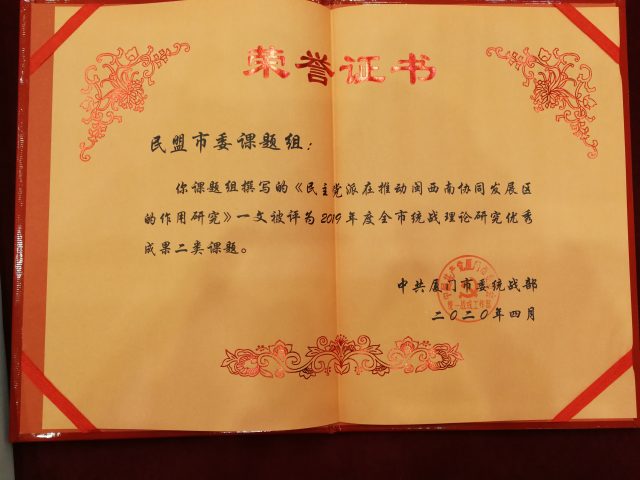 荣誉证书
民盟市委课题组：
你课题组撰写的《民主党派在推动闽西南协同发展区
的作用研究》一文被评为2019年度全市统战理论研究优秀
成果二类课题。
中共厦门市委统战部
二〇二〇年四月